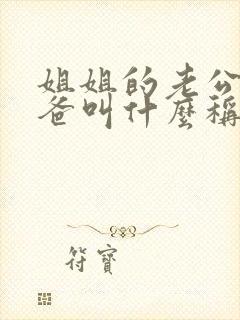 姐姐的老公
爸叫什麼稱
符寶